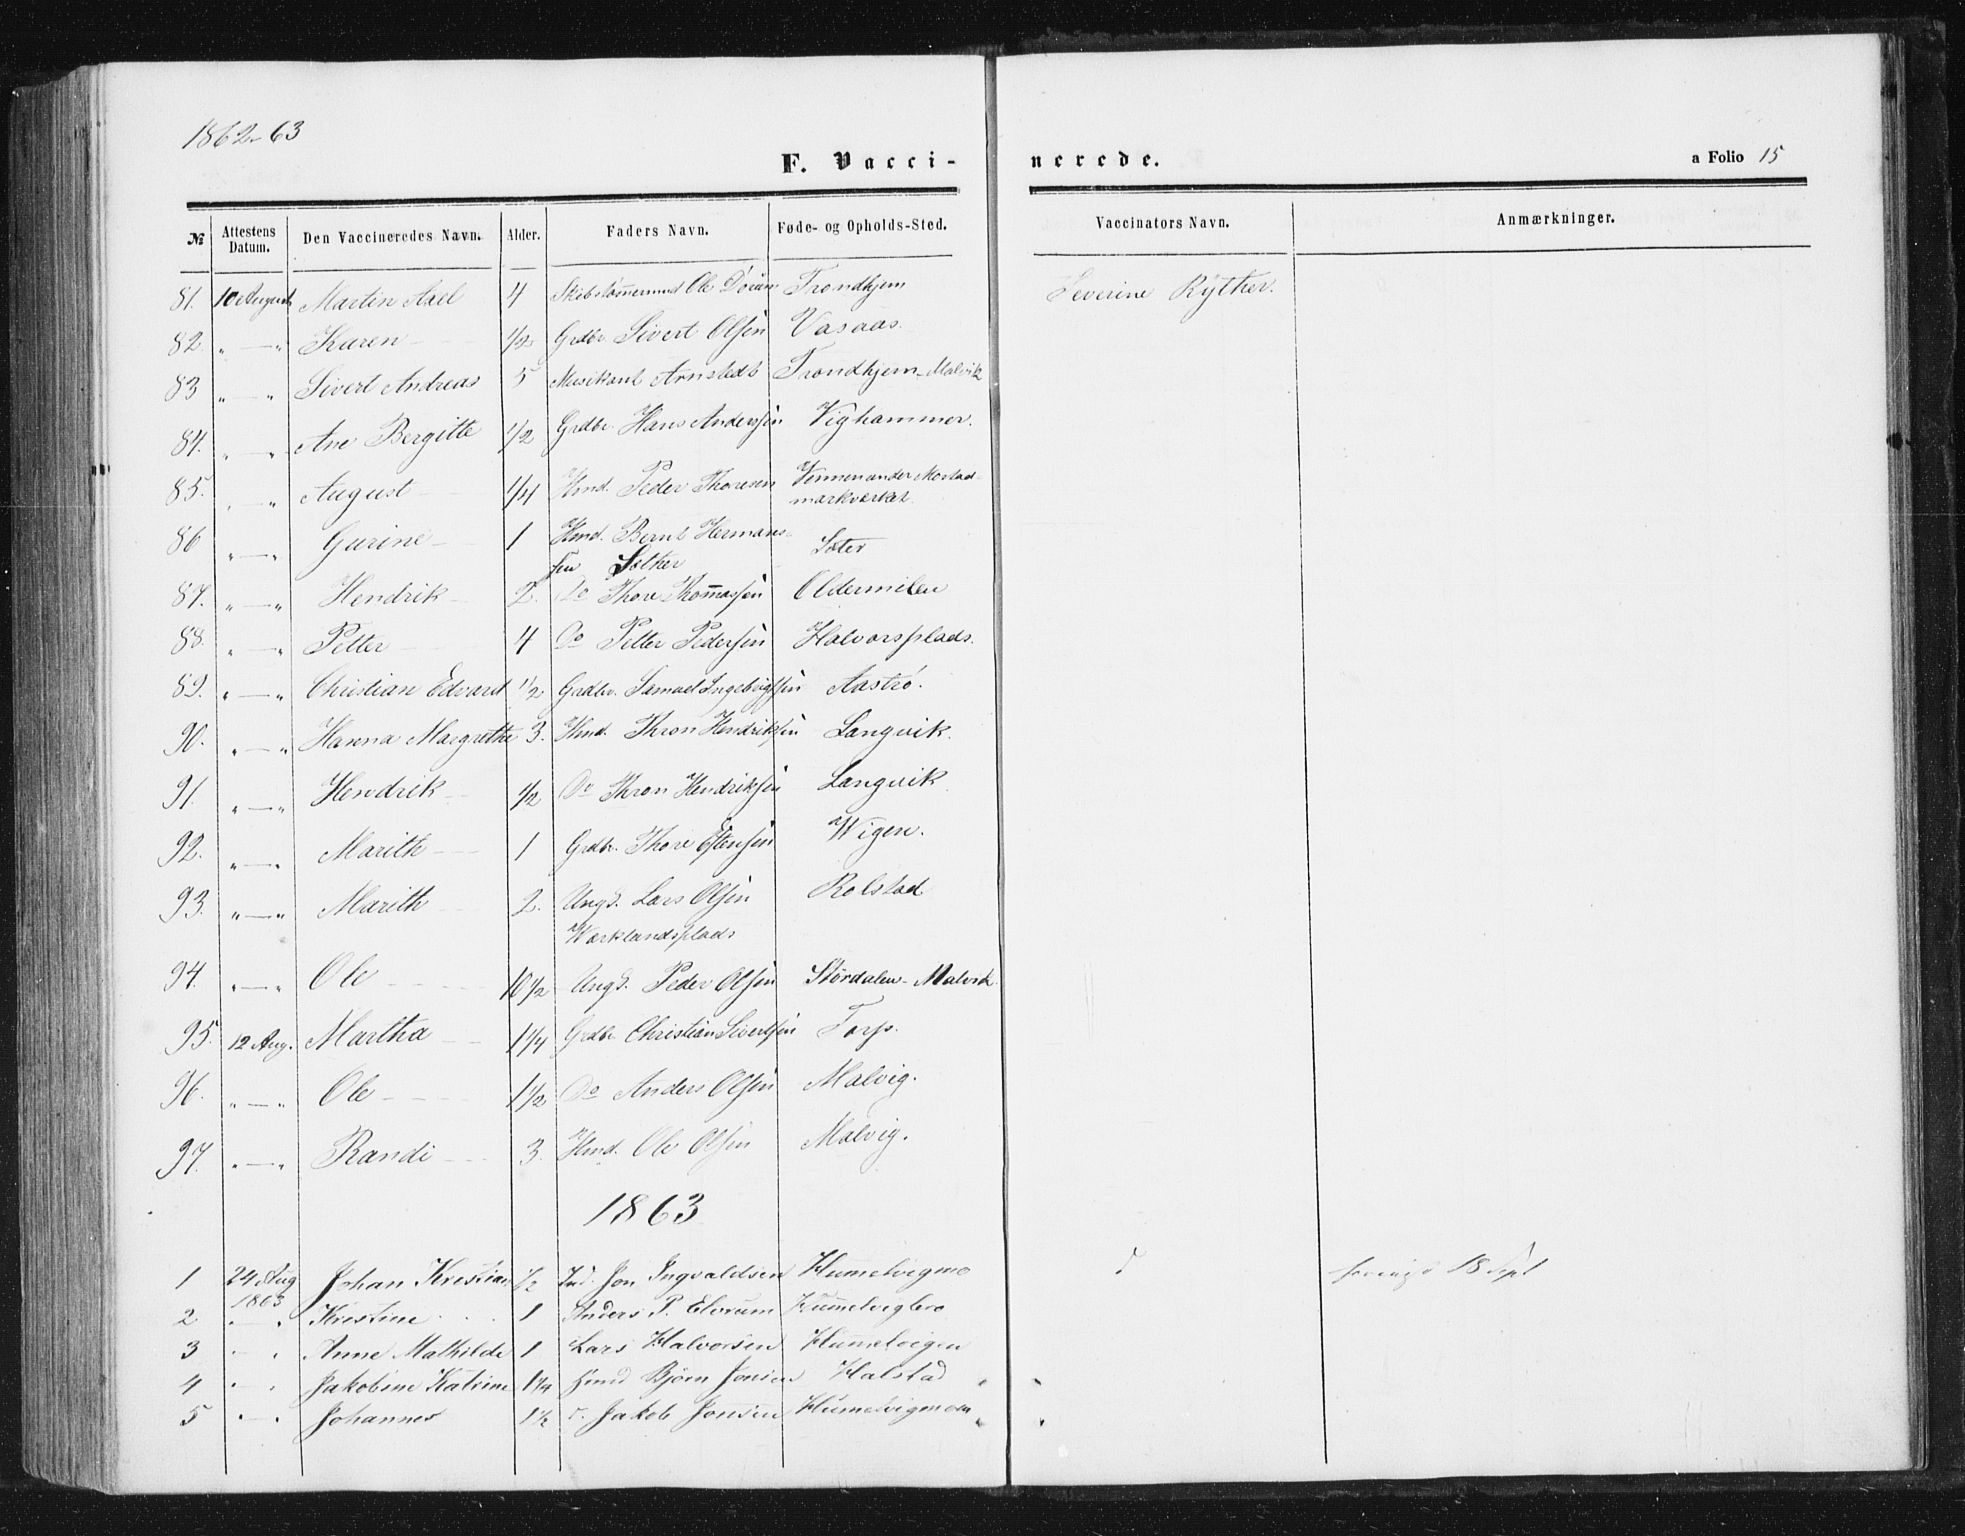 1862-63
F. Vacci- nerede. a Folio 15
№ Attestens Datum. Den Vaccineredes Navn. Alder. Faders Navn. Føde- og Opholds-Sted. Vaccinators Navn. Anmærkninger.
81. 10 August Martin Axel 4 Ole Trondhjem Severine Ryther.
82. " — " Karen 1/2 Grdbr. Sivert Olsen Vasaas.
83 " — " Sivert Andreas 5 Musikant Arnstedt Trondhjem-Malvik
84. " " Ane Bergitte 1/2 Grdbr. Hans Anderssen Vighammer.
85. " " August 1/4 Hmd. Peder Thoresen under Mostad-
markværket.
86 " — " Gurine 1 Hmd. Bernt Hermans-
sen Sæther Sæter
87. " — " Hendrik 2. Do Thore Thomassen Oldermelen
88. " — " Petter 4 Do Petter Pedersen Halvorsplads.
89. " — " Christian Edvard 1/2 Grdbr. Samuel Ingebrigtsen Aastrø.
90. " — " Hanna Margrethe 3. Hmd. Thron Hendriksen Langvik.
91. " — " Hendrik 1/2 Do Thron Hendriksen Langvik
92. " — " Marith 1 Grdbr. Thore Estensen Wigen.
93. " — " Marith 2. Ungd. Lars Olsen Rolstad
Værklandsplads
94. " — " Ole 10 1/2 Ungd. Peder Olsen Størdalen-Malvik.
95. 12 Aug. Martha 1 1/4 Grdbr Christian Sivertsen Torp.
96. " — " Ole 1 1/2 Do Anders Olsen Malvig.
97. " — " Randi 3. Hmd. Ole Olsen Malvig.
1863
1 24 Aug Johan Kristian 1/2 Ind. Jon Ingvaldsen Hummelvigmo 18 Sept
1863
2 " " Kristine 1 Anders P. Elvrum
3 " " Anne Mathilde 1 Lars Halvorsen Hummelvigen
4 " " Jakobine Katrine 1 1/4 Hmd Bjørn Jonsen Halstad
5 " " Johannes 1 1/2 Jakob Jonsen